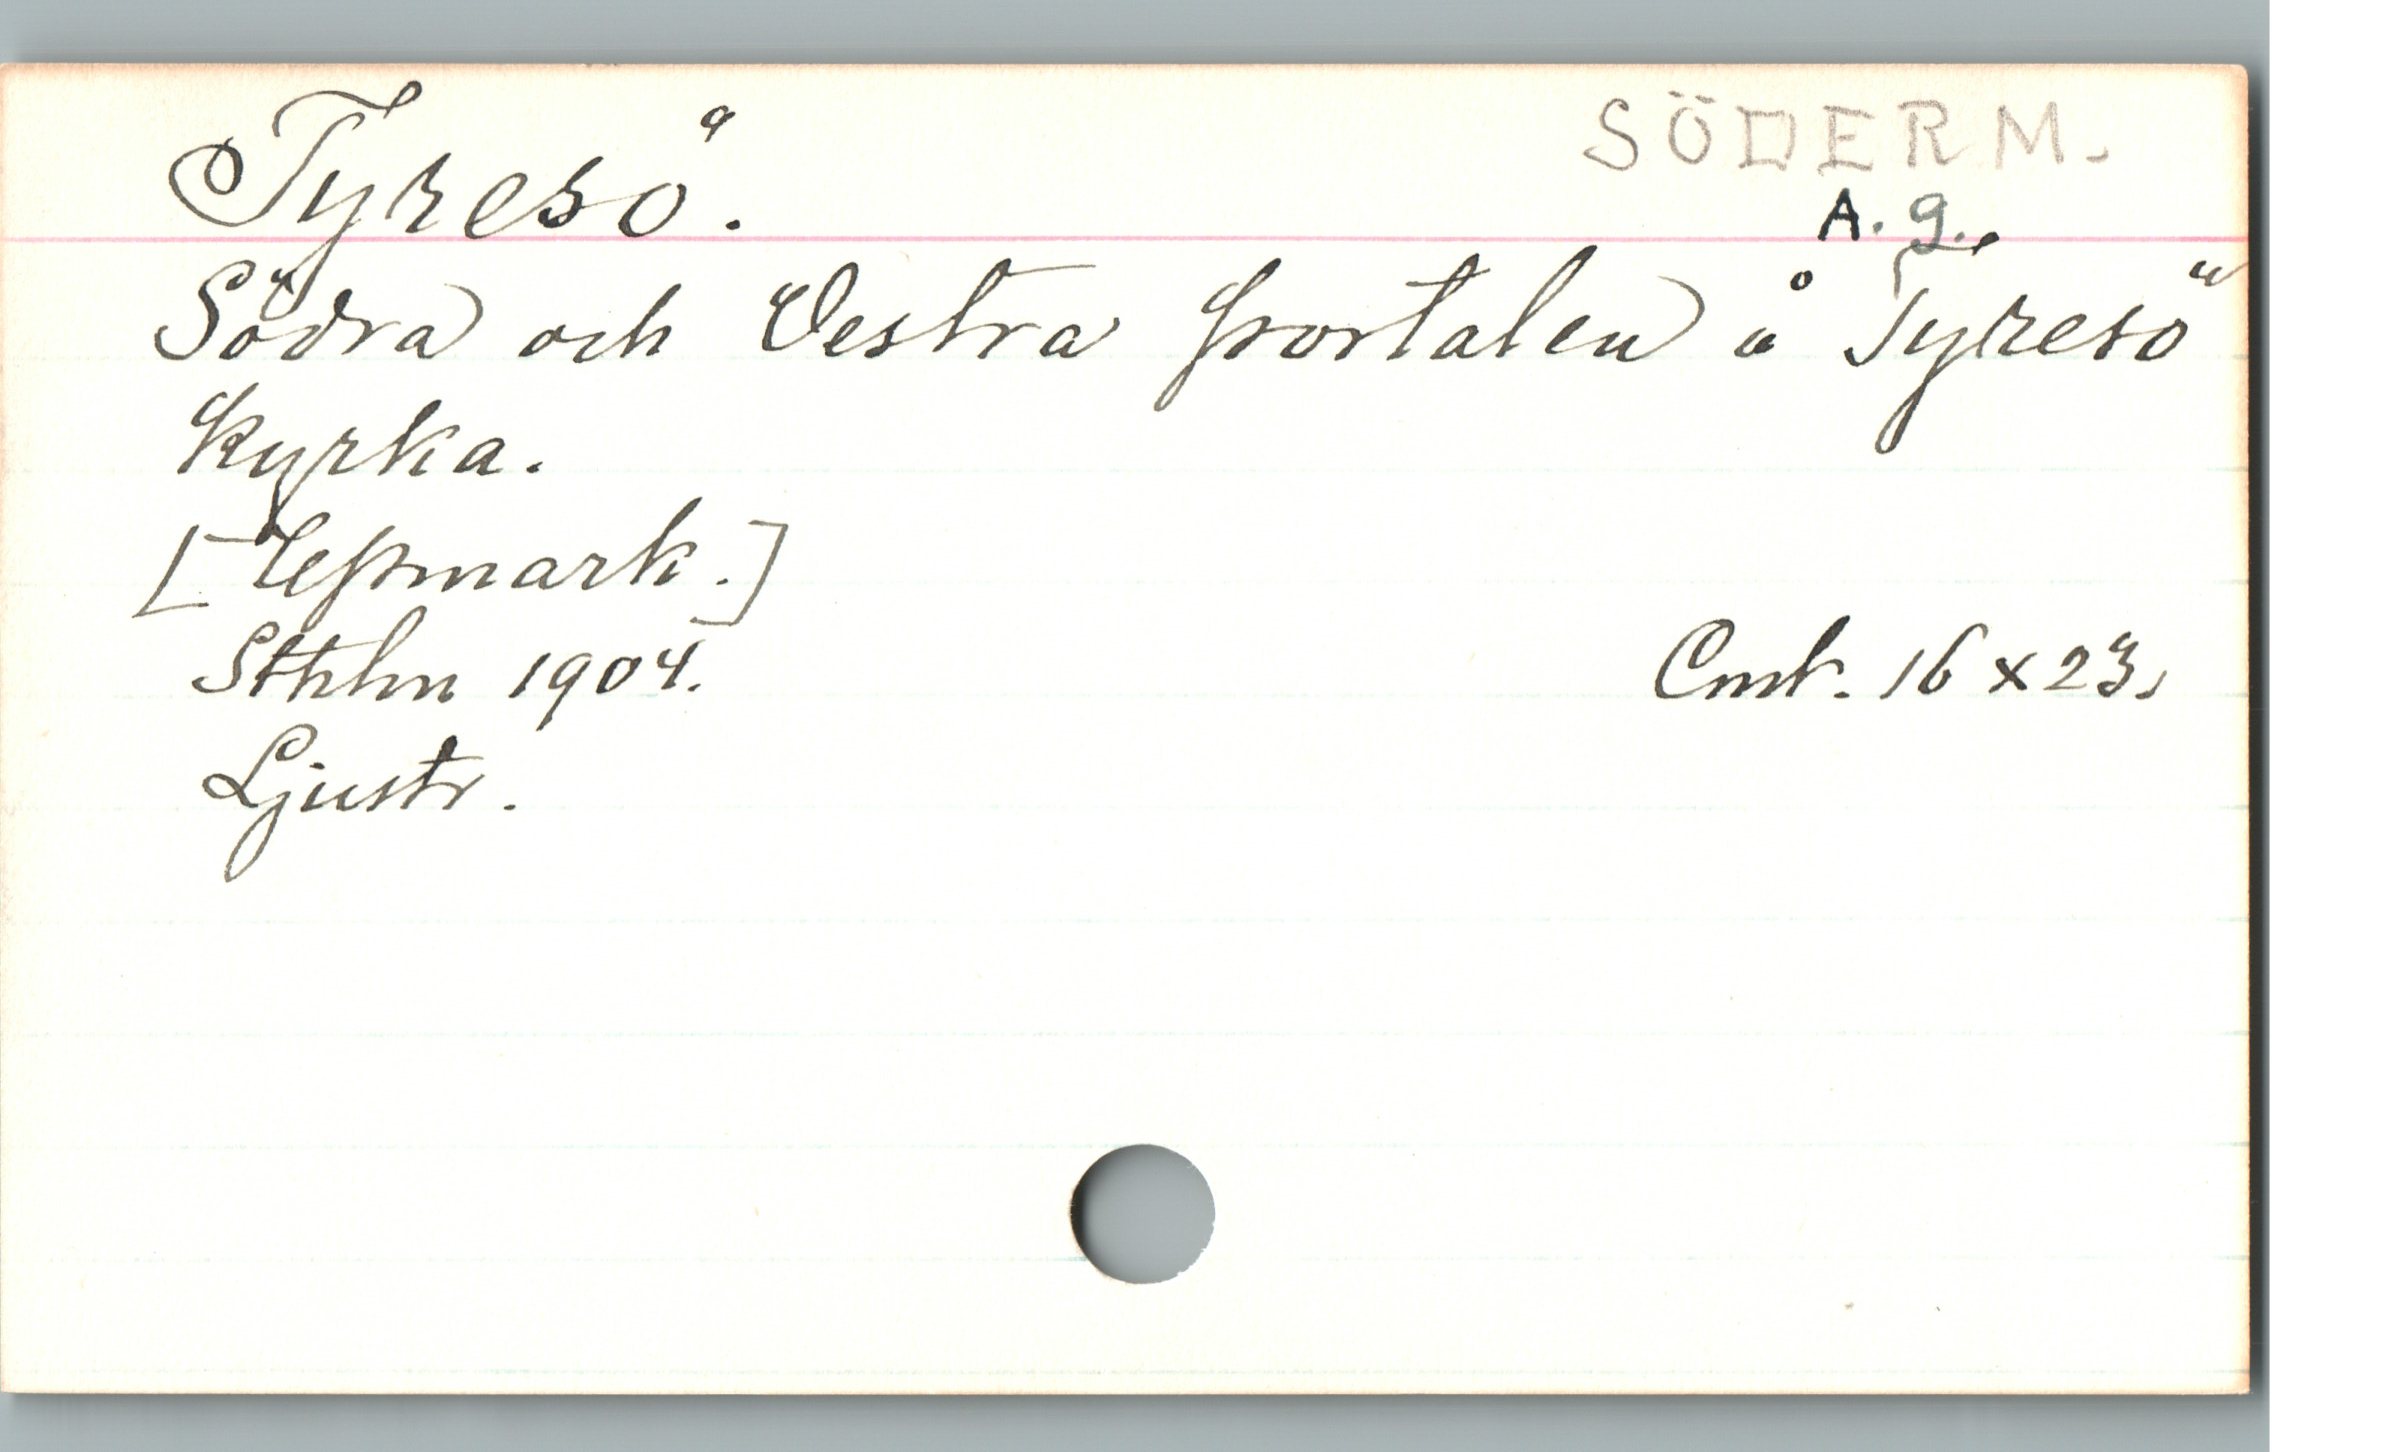 Tyresö.
SÖDERM.
A. g.
Södra och Vestra portalen å Tyresö
kyrka.
[Uppmark.]
Sthlm 1904.
Cmt. 16 x 23.
Ljustr.